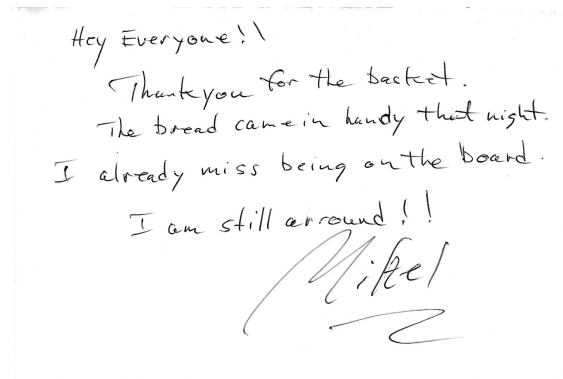 Hey Everyone!!
Thankyou for the basket.
The bread came in handy that night.
I already miss being on the board.
I am still arround!!
Mikel